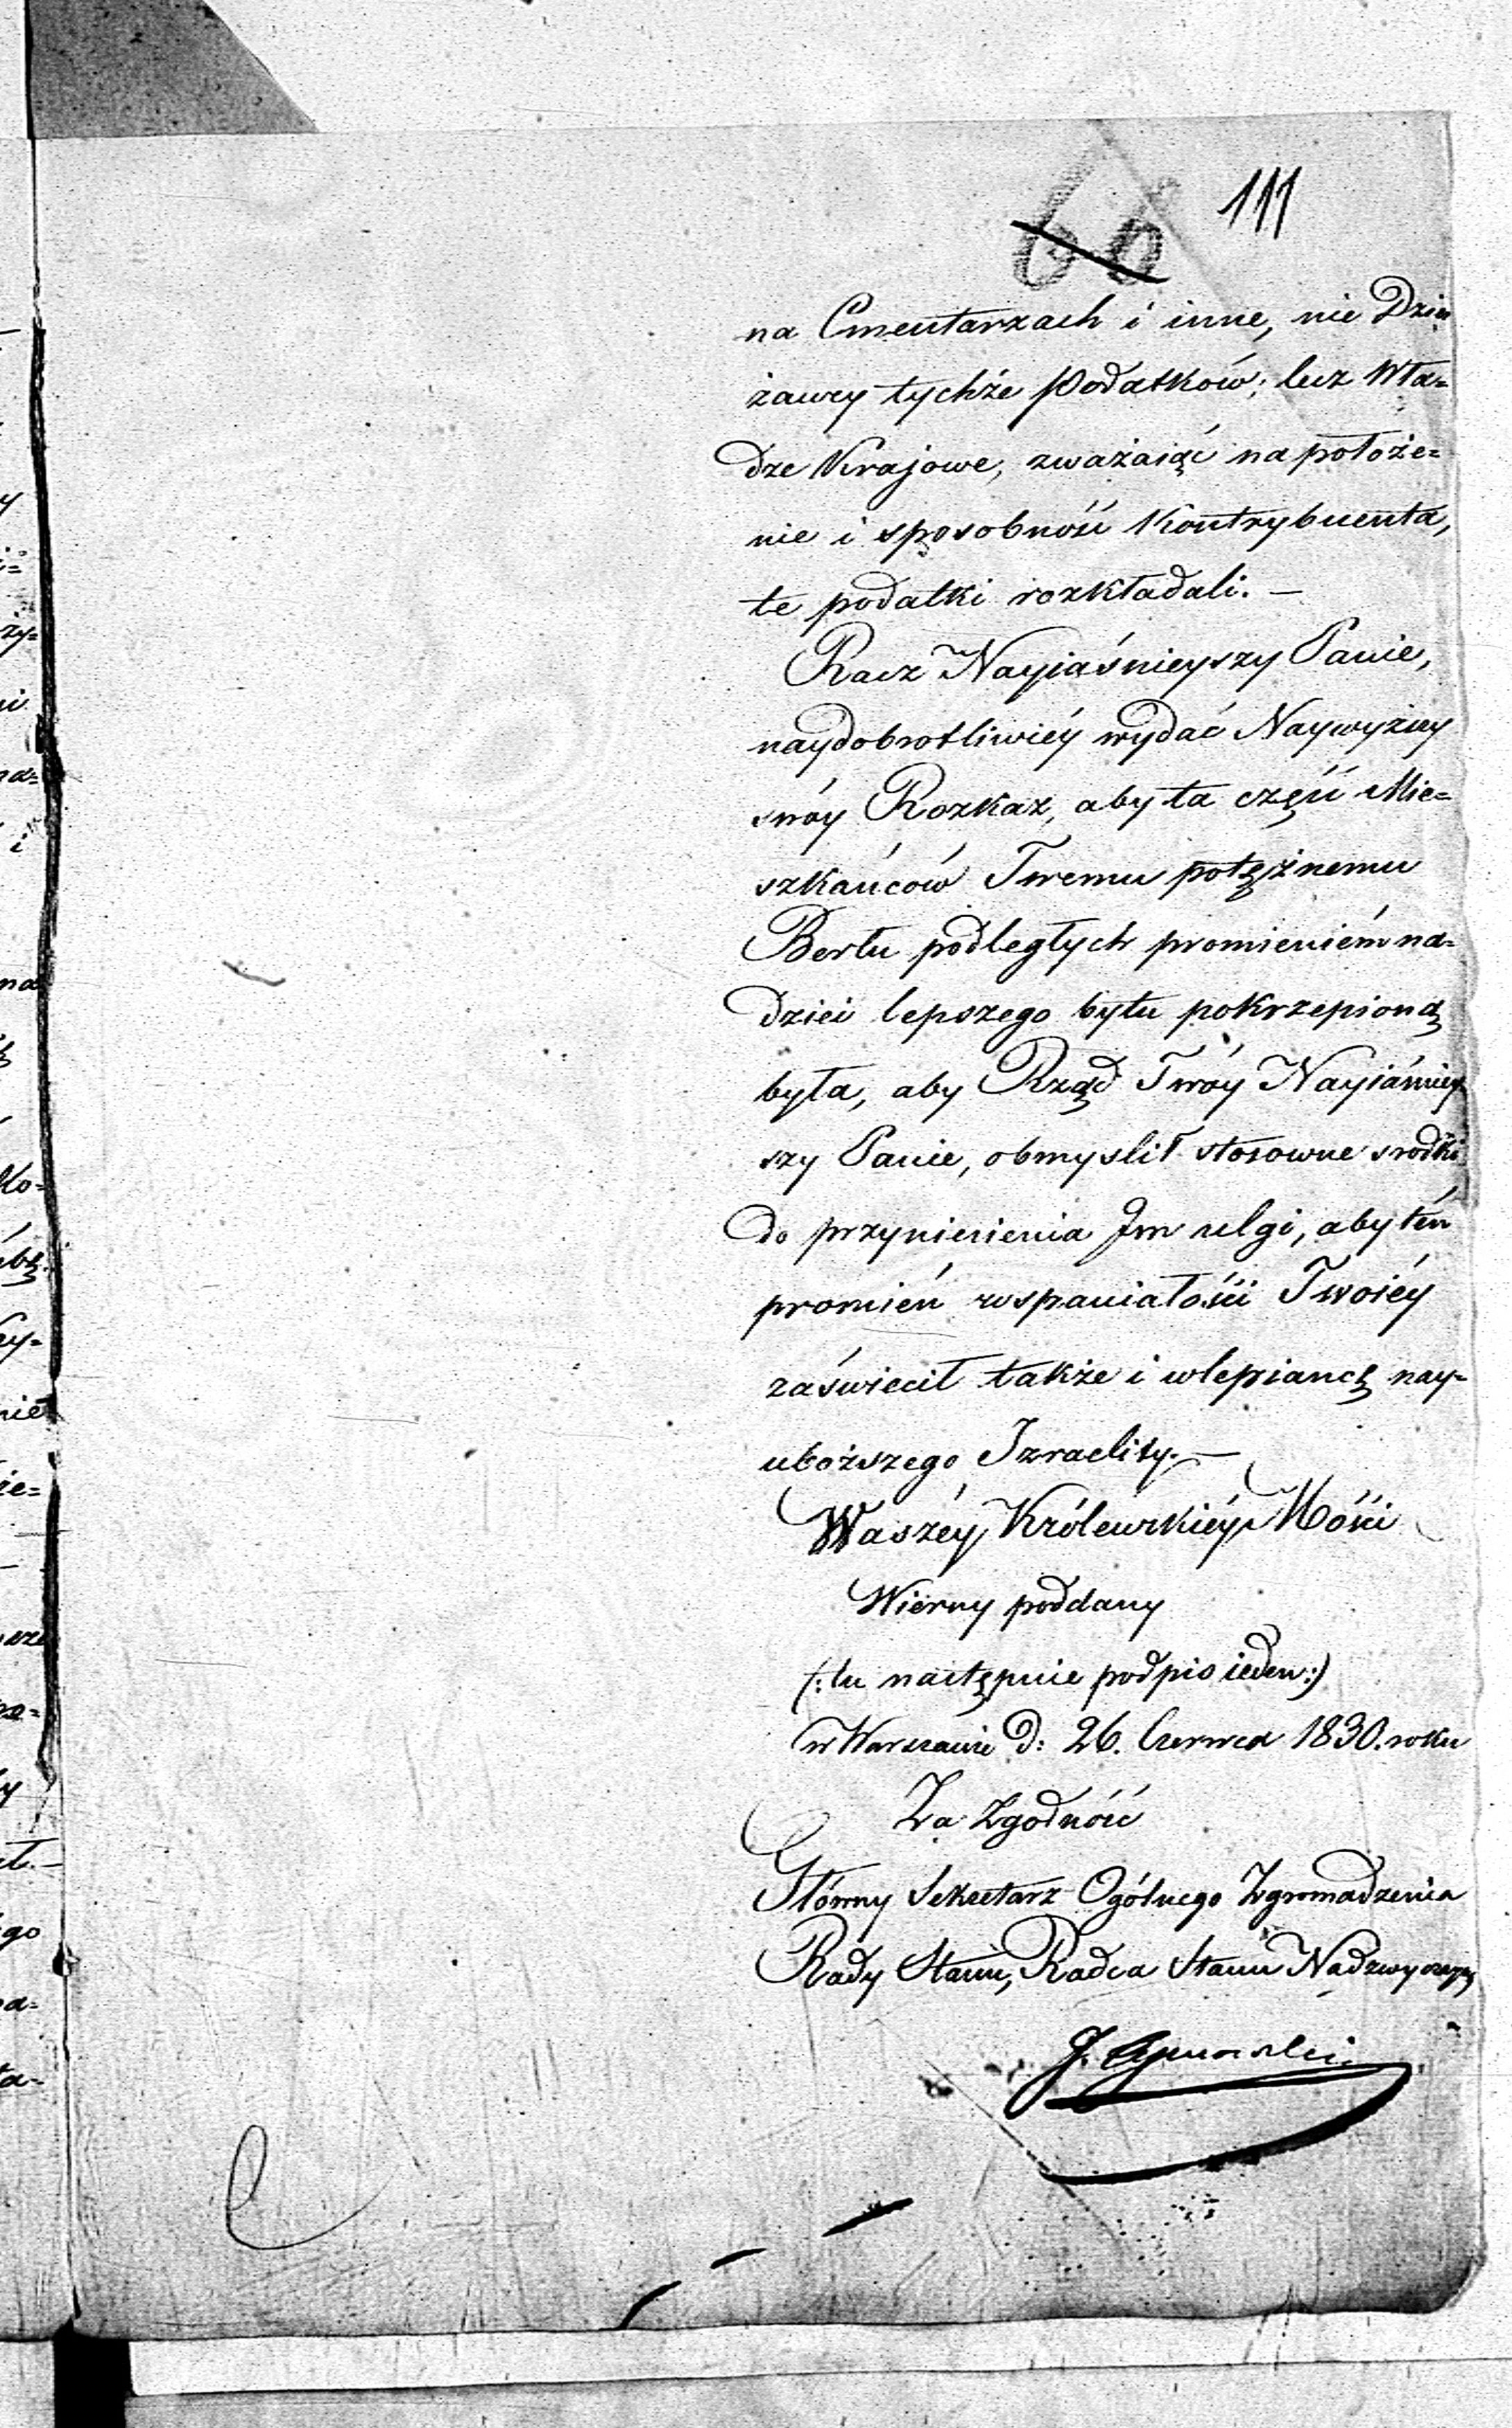 111
na Cmentarzach i inne, nie Dzier
żawcy tychże Podatków; lecz Wła=
dze Krajowe, zważaiąc na położe=
nie i sposobność Kontrybuenta,
te podatki rozkładali. —
Racz Nayiaśnieyszy Panie,
naydobrotliwiéy wydać Naywyższy
swóy Rozkaz, aby ta część Mie=
szkańców Twemu potężnemu
Berłu podległych promieniém na=
dziei lepszego bytu pokrzepioną
była, aby Rząd Twóy Nayiaśniey
szy Panie, obmyslił stosowne srodki
do przyniesienia Im ulgi, aby tén
promień wspaniałości Twoiéy
zaświecił także i w lepiankę nay=
uboższego Izraelity. —
Waszéy Królewskiéy Mości
Wierny poddany
(: tu następuie podpis ieden :)
w Warszawie d: 26. Czerwca 1830. roku
Za Zgodność
Główny Sekretarz Ogólnego Zgromadzenia
Rady Stanu, Radca Stanu Nadzwyczayny
J.